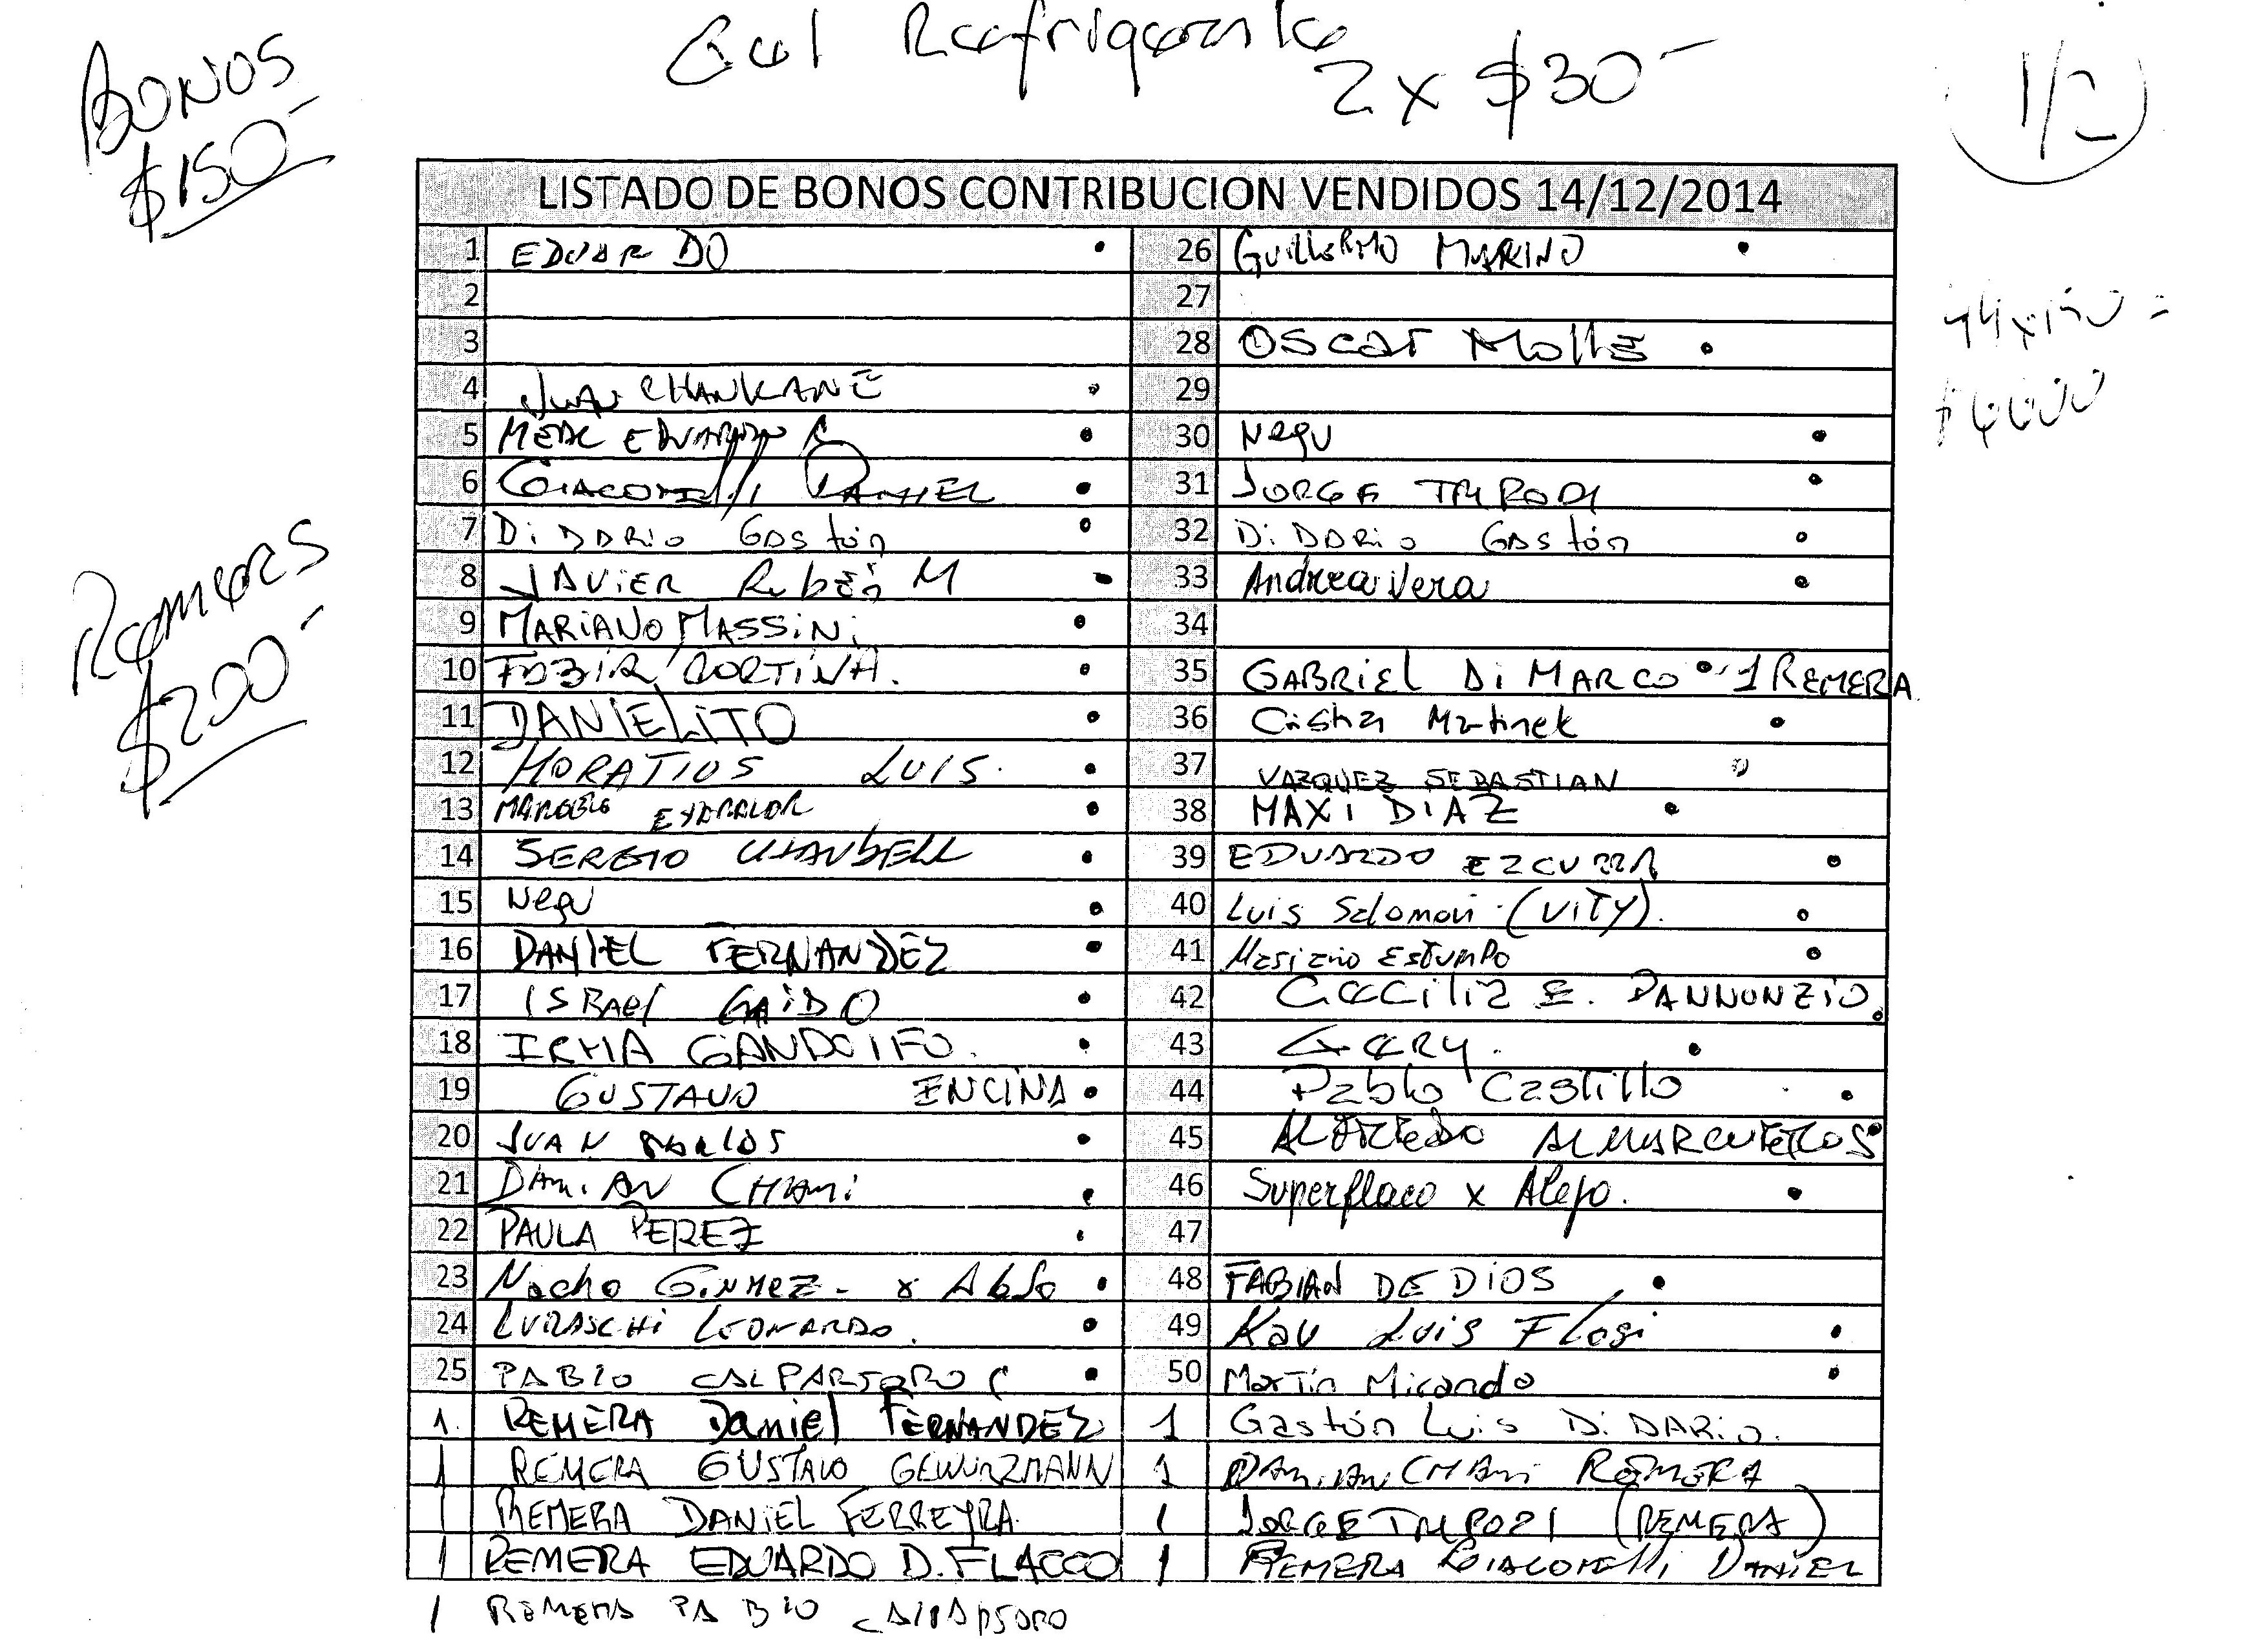 Gel Refrigerante
2 x $30-
1/2
BONOS
$150-
Remeras
$200-
LISTADO DE BONOS CONTRIBUCION VENDIDOS 14/12/2014
1 EDUARDO
2
3
4 JUAN CHANKANE
5 EDUARDO
6 GIACOMELLI DANIEL
7 Di DARIO Gastón
8 JAVIER Rubén M
9 MARIANO MASSINi
10 CORTINA.
11 DANIELITO
12 HORATIUS LUIS.
13
14 SERGIO
15 Negu
16 DANIEL FERNANDEZ
17 ISRAEL GAIDO
18 IRMA GANDOLFO.
19 GUSTAVO ENCINA
20 JUAN CARLOS
21 DAMIAN CHAMi
22 PAULA PEREZ
23 Nacho x
24 LURASCHI LEONARDO.
25 PABLO CALPARSORO
26 GUILLERMO MARINO
27
28 OSCAR MOLLE
29
30 Negu
31 JORGE
32 Di DARIO Gastón
33 Andrea Vera
34
35 GABRIEL Di MARCO 1 REMERA
36
37 VAZQUEZ SEBASTIAN
38 MAXI DIAZ
39 EDUARDO EZCURRA
40 Luis Salomon (VITY).
41 Mariano
42 Cecilia E. DANNUNZIO
43 GERY.
44 Pablo Castillo
45 ALFREDO
46 Superflaco x Alejo.
47
48 FABIAN DE DIOS
49 Kau Luis
50 Martín Miranda
1. REMERA Daniel FERNANDEZ
1 REMERA GUSTAVO GEWURZMANN
1 REMERA DANIEL FERREYRA
1 REMERA EDUARDO D. FLACCO
1 Gastón Luis Di DARIO.
1 DAMIAN CHAMi REMERA
1 JORGE (REMERA)
1 REMERA GIACOMELLI DANIEL
1 REMERA PABLO CALPARSORO
44x150=